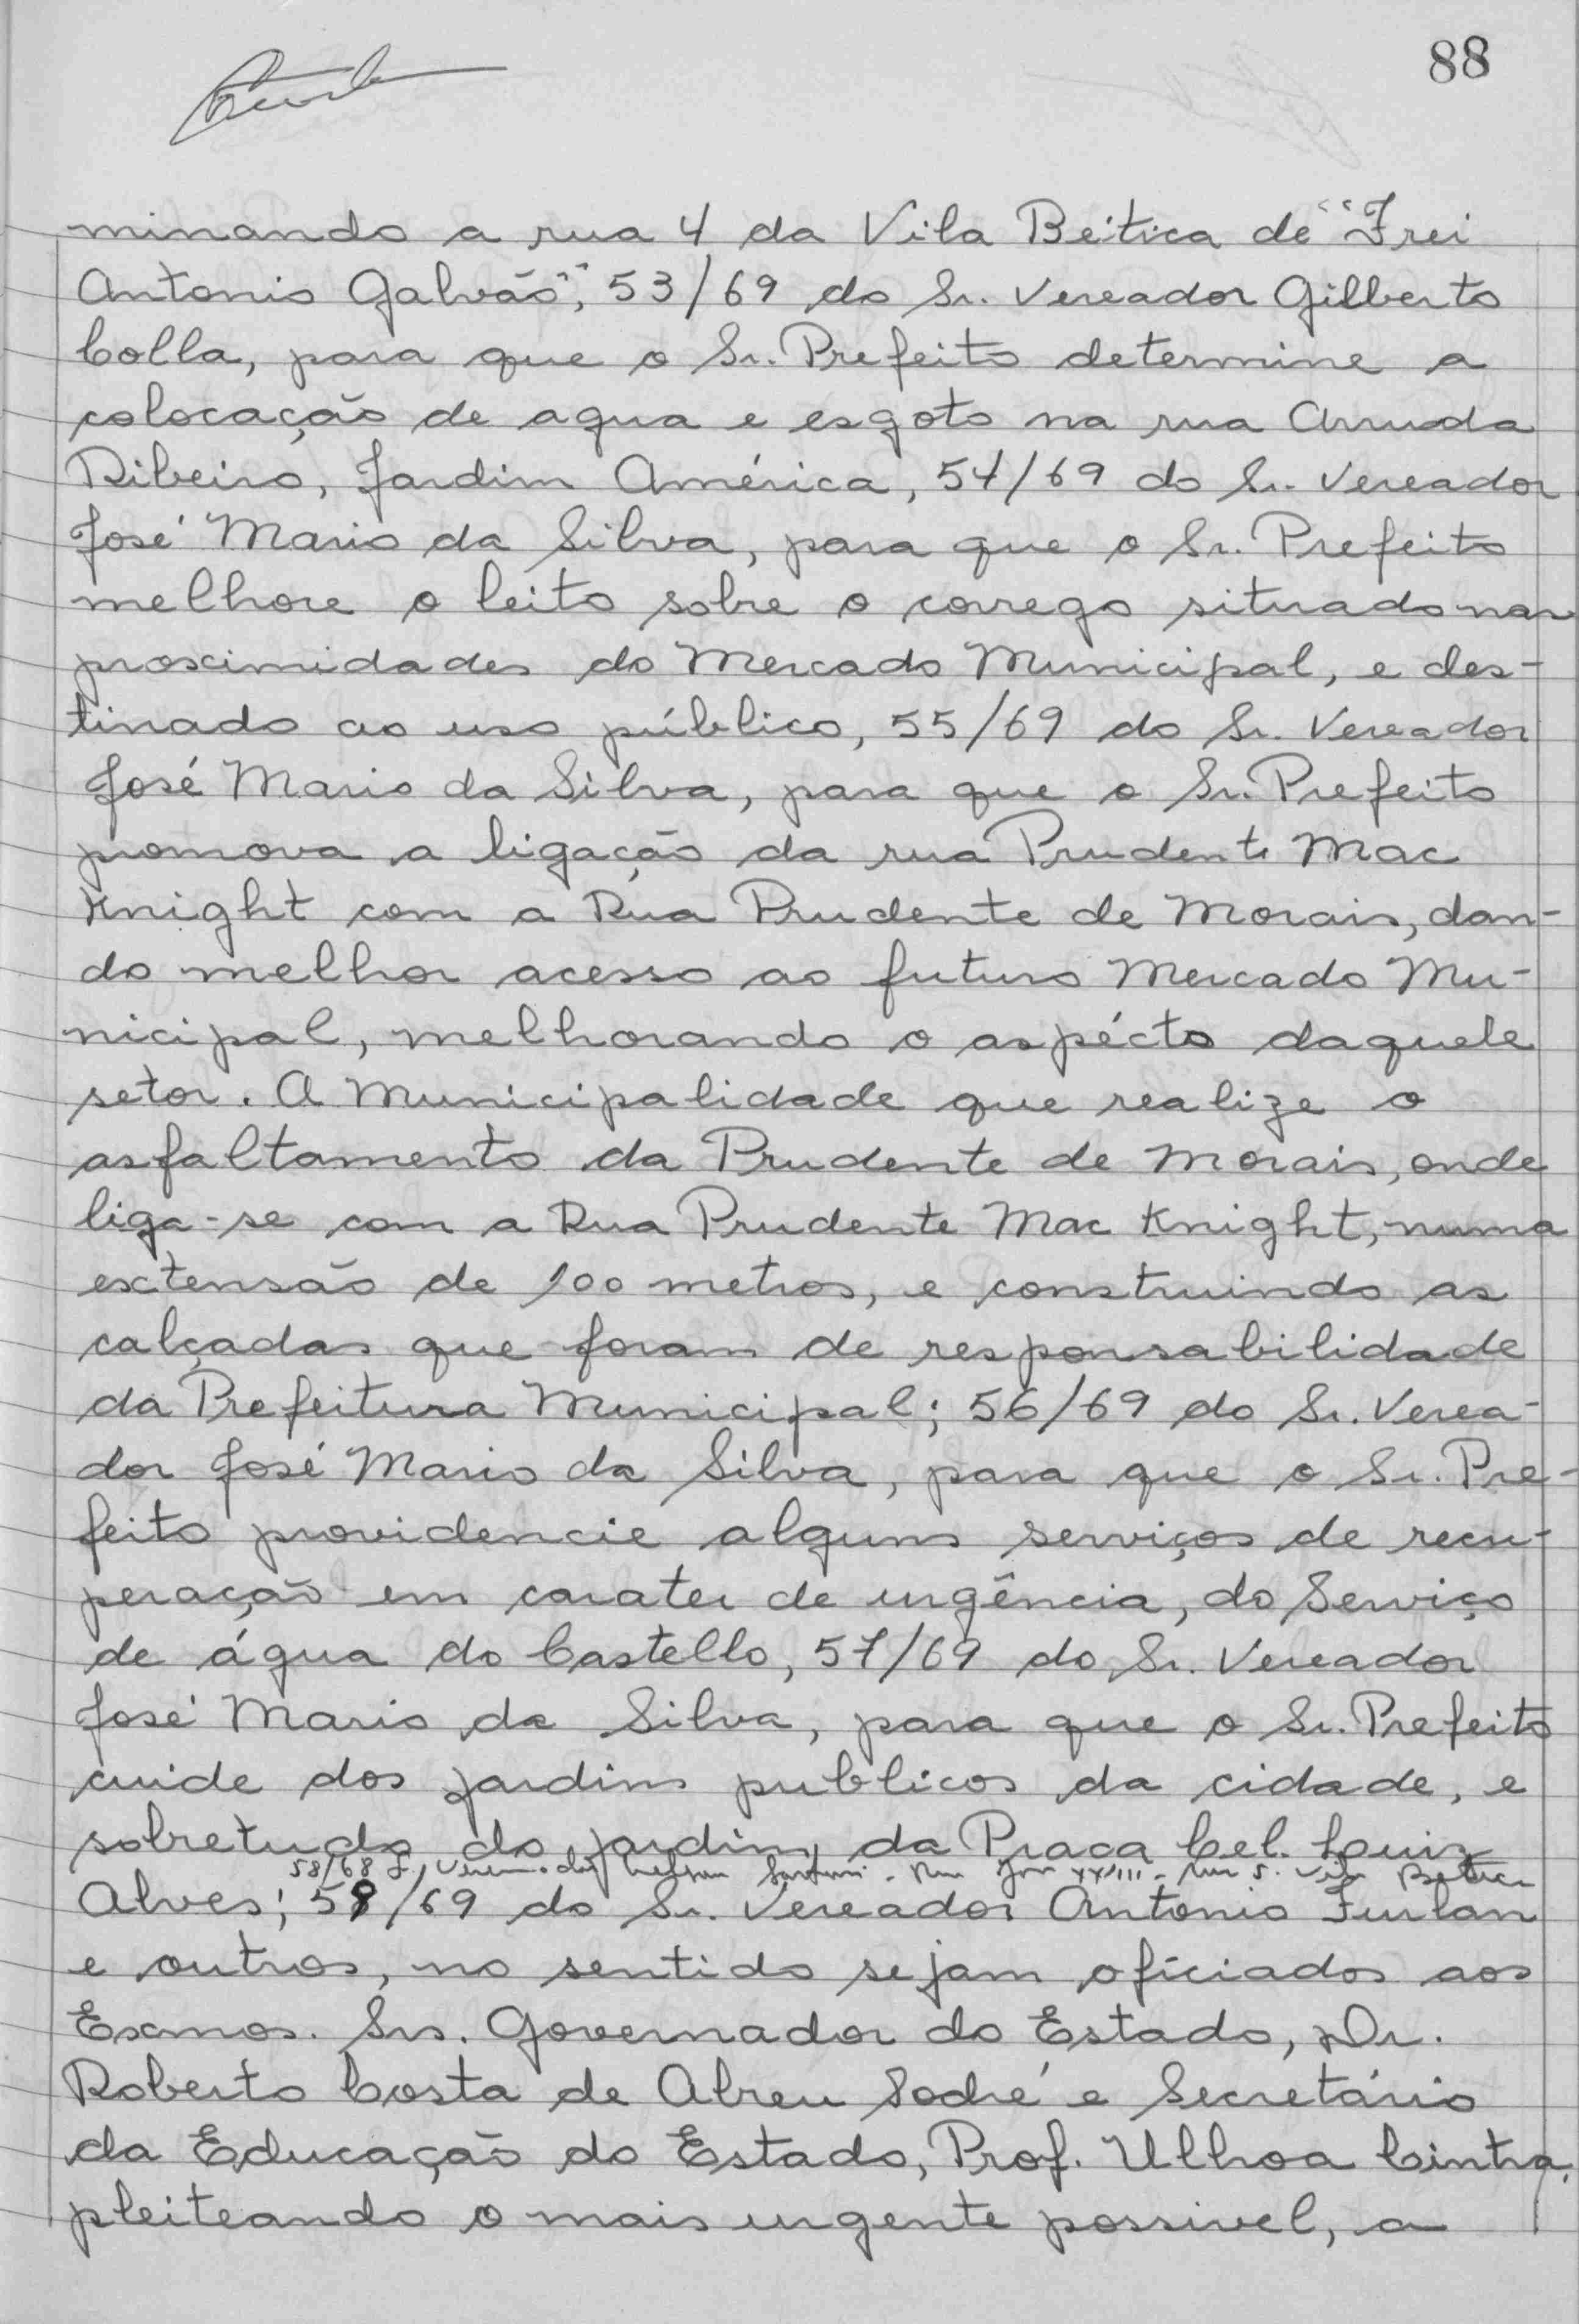 88
minando a rua 4 da Vila Beitica de "Frei
Antonio Galvão", 53/69 do Sr. Vereador Gilberto
Colla, para que o Sr. Prefeito determine a
colocação de agua e esgoto na rua Arruda
Ribeiro, Jardim América, 54/69 do Sr. Vereador
José Mario da Silva, para que o Sr. Prefeito
melhore o leito sobre o corrego situado nas
proximidades do Mercado Municipal, e des-
tinado ao uso público, 55/69 do Sr. Vereador
José Mario da Silva, para que o Sr. Prefeito
promova a ligação da rua Prudente Mac
Knight com a Rua Prudente de Morais, dan-
do melhor acesso ao futuro Mercado Mu-
nicipal, melhorando o aspécto daquele
setor. A Municipalidade que realize o
asfaltamento da Prudente de Morais, onde
liga-se com a Rua Prudente Mac Knight, numa
extensão de 100 metros, e construindo as
calçadas que foram de responsabilidade
da Prefeitura Municipal; 56/69 do Sr. Verea-
dor José Mario da Silva, para que o Sr. Pre-
feito providencie alguns serviços de recu-
peração em carater de urgência, do Serviço
de água do Castello, 57/69 do Sr. Vereador
José Mario da Silva, para que o Sr. Prefeito
cuide dos jardins publicos da cidade, e
sobretudo do jardim da Praça Cel. Luiz
58/68 Rua XXIII Vila
Alves; 59/69 do Sr. Vereador Antonio Furlan
e outros, no sentido sejam oficiados aos
Exmos. Srs. Governador do Estado, Dr.
Roberto Costa de Abreu Sodré e Secretário
da Educação do Estado, Prof. Ulhoa Cintra,
pleiteando o mais urgente possivel, a